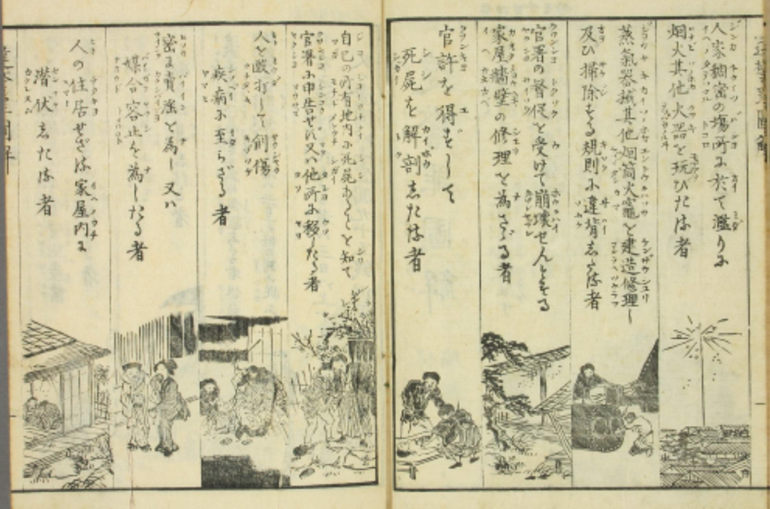 人家稠密の場所に於て濫りに
烟火其他火器を玩びたる者
蒸氣器械其他烟筒火竈を建造修理し
及び掃除する規則に違背したる者
官署の督促を受けて崩壊せんとする
家屋牆壁の修理を為さゞる者
官許を得ずして
死屍を解剖したる者
自己の所有地内に死屍あることを知て
官署に申告せず又ハ他所に移したる者
人を毆打して創傷
疾病に至らざる者
密に賣淫を為し又ハ
媒合容止を為したる者
人の住居せざる家屋内に
潜伏したる者